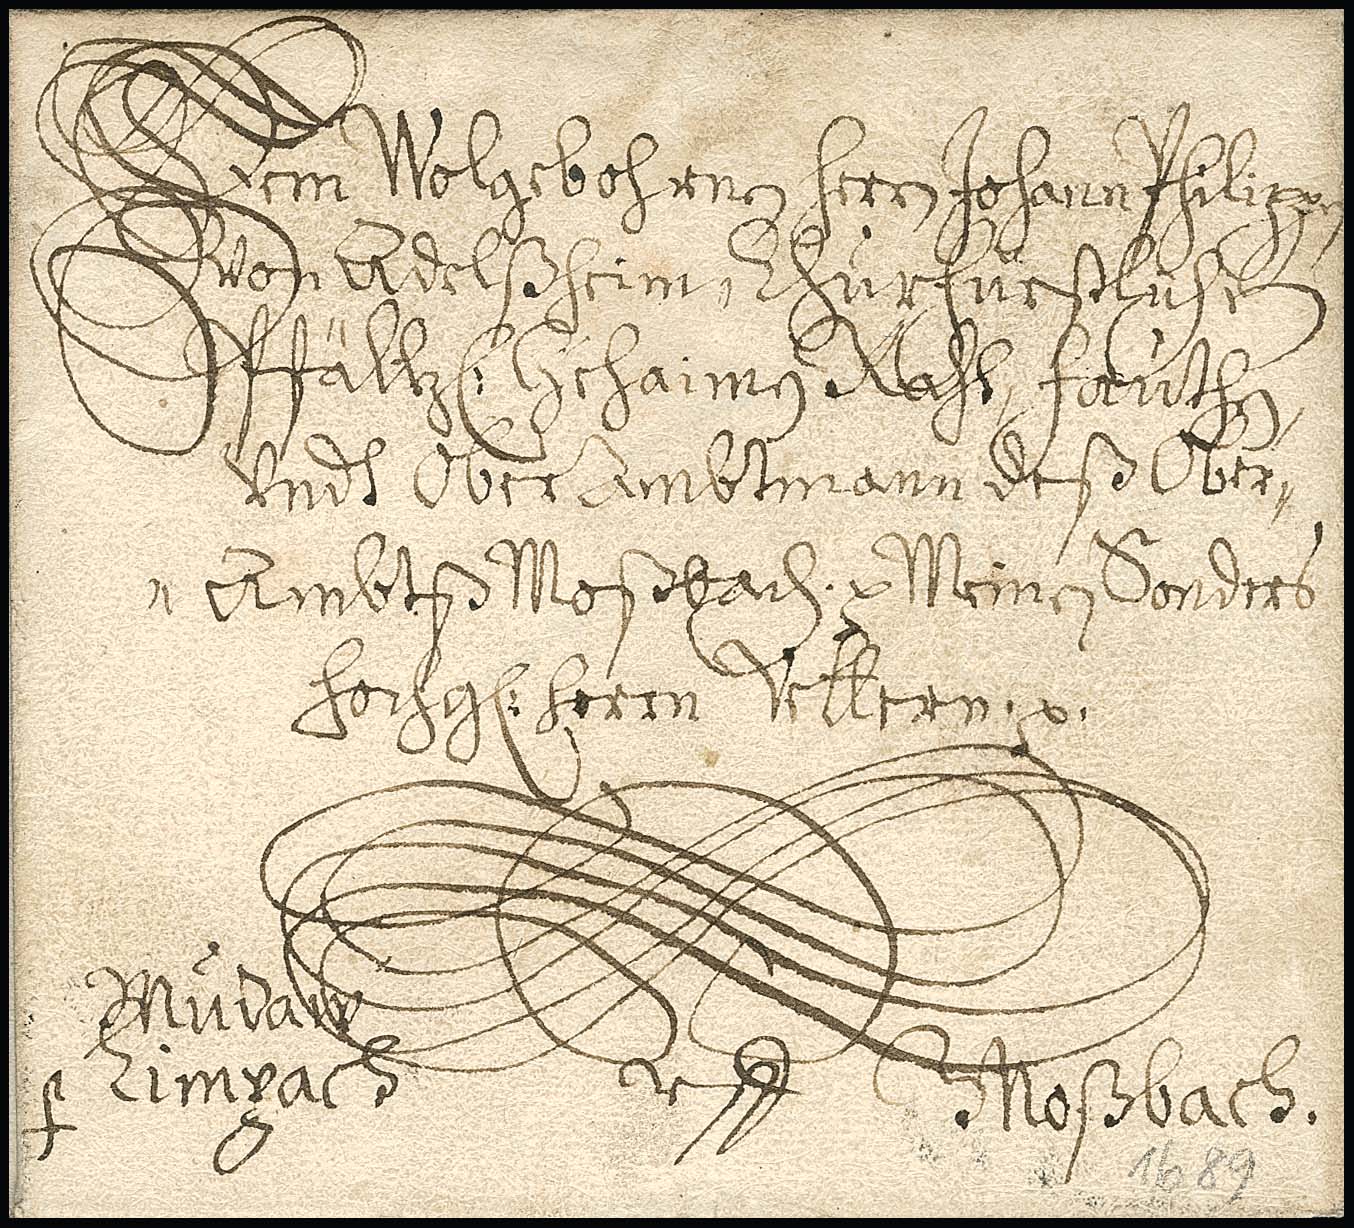 Dem Wolgebohrnen herrn Johann Philippen
von Adelßheim, Chürfürstlicher
Pfältz: Gehaimen Raht, fauthen,
Vndt Ober Ambtmann deß Ober„
„ Ambtß Moßbach. Meinem Sonders
hochgl: herrn Vettern.
Müdaw
Limpach
Moßbach.
1689